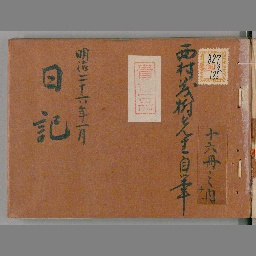 西村茂樹先生自筆
十六冊之内
明治二十六年一月
日記